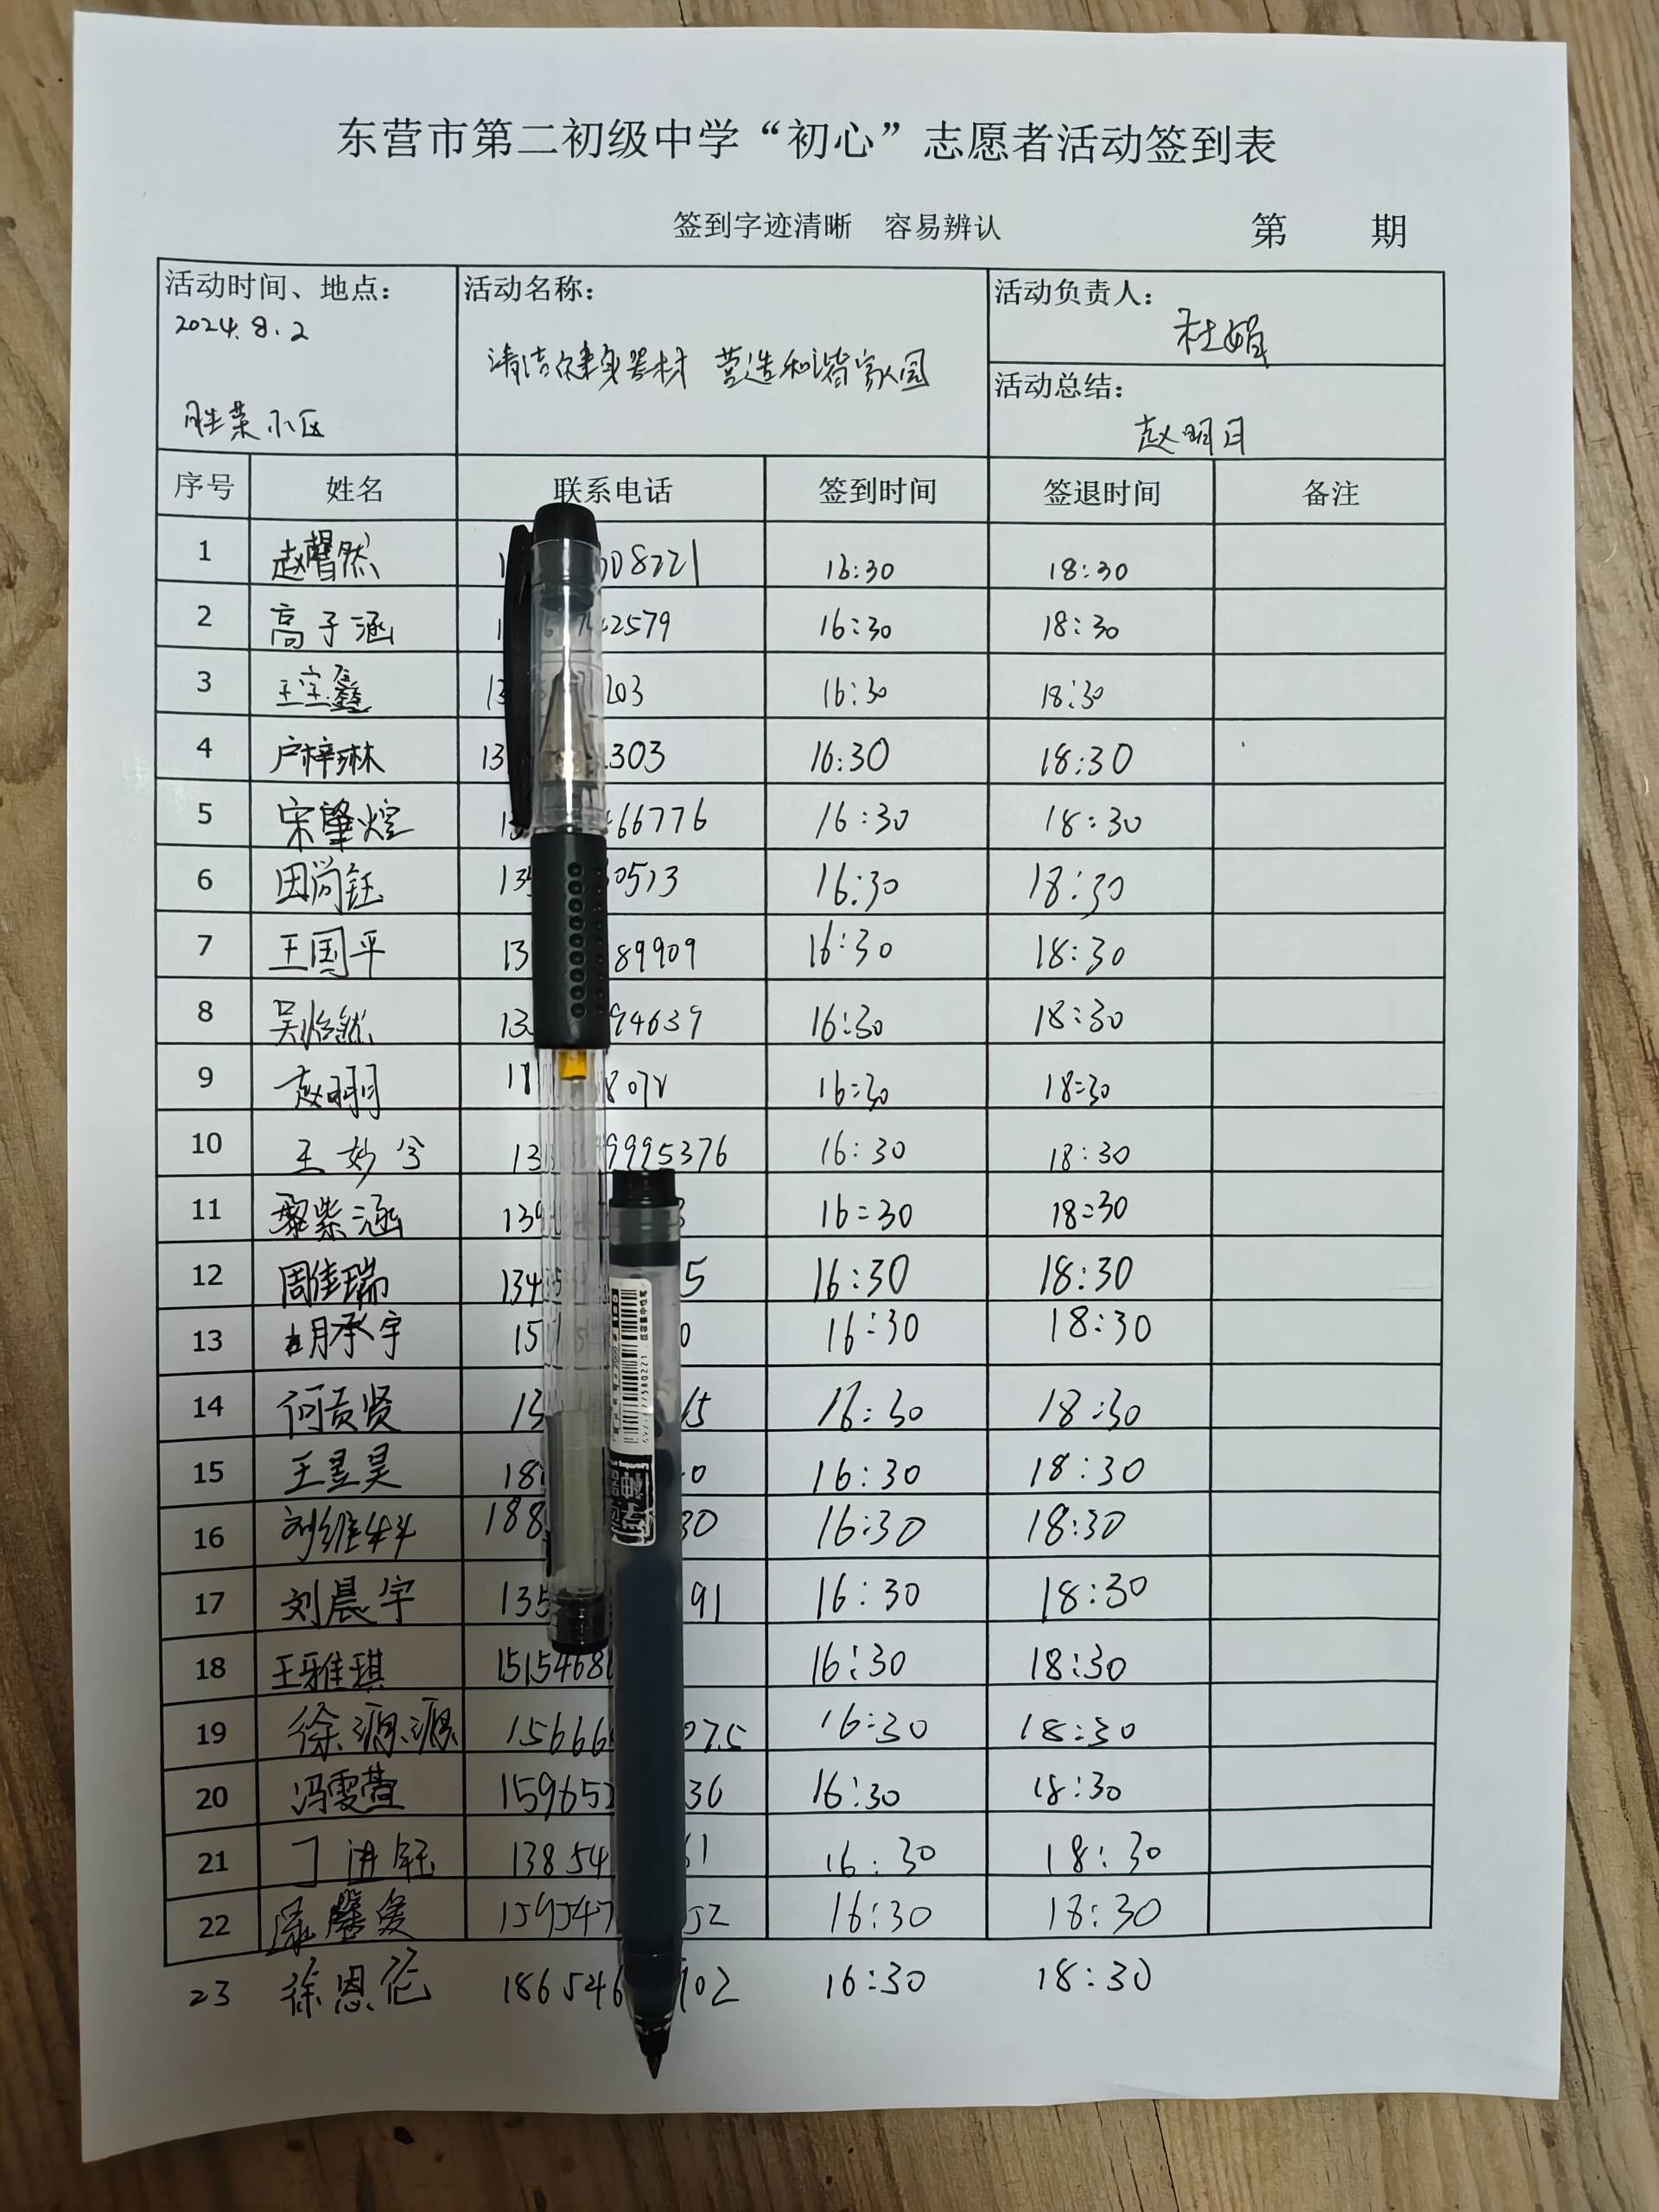 东营市第二初级中学“初心”志愿者活动签到表
签到字迹清晰 容易辨认 第 期
活动时间、地点： 活动名称： 活动负责人：
2024.8.2 杜娟
清洁健身器材 营造和谐家园
活动总结：
胜荣小区 赵明月
序号 姓名 联系电话 签到时间 签退时间 备注
1 赵馨然 08221 16:30 18:30
2 高子涵 2579 16:30 18:30
3 王宝鑫 13 203 16:30 18:30
4 卢梓琳 13 303 16:30 18:30
5 宋肇煊 66776 16:30 18:30
6 田尚钰 13 0513 16:30 18:30
7 王国平 13 89909 16:30 18:30
8 吴怡然 13 94639 16:30 18:30
9 赵明月 16:30 18:30
10 王妙兮 13 9995376 16:30 18:30
11 紫涵 139 16:30 18:30
12 周佳瑞 134 5 16:30 18:30
13 胡承宇 15 0 16:30 18:30
14 何贡贤 13 15 16:30 18:30
15 王昱昊 18 0 16:30 18:30
16 刘维 188 30 16:30 18:30
17 刘晨宇 135 91 16:30 18:30
18 王雅琪 1515468 16:30 18:30
19 徐源源 15666 075 16:30 18:30
20 冯雯萱 159652 36 16:30 18:30
21 丁进钰 13854 61 16:30 18:30
22 159547 52 16:30 18:30
23 徐恩伦 186546 902 16:30 18:30